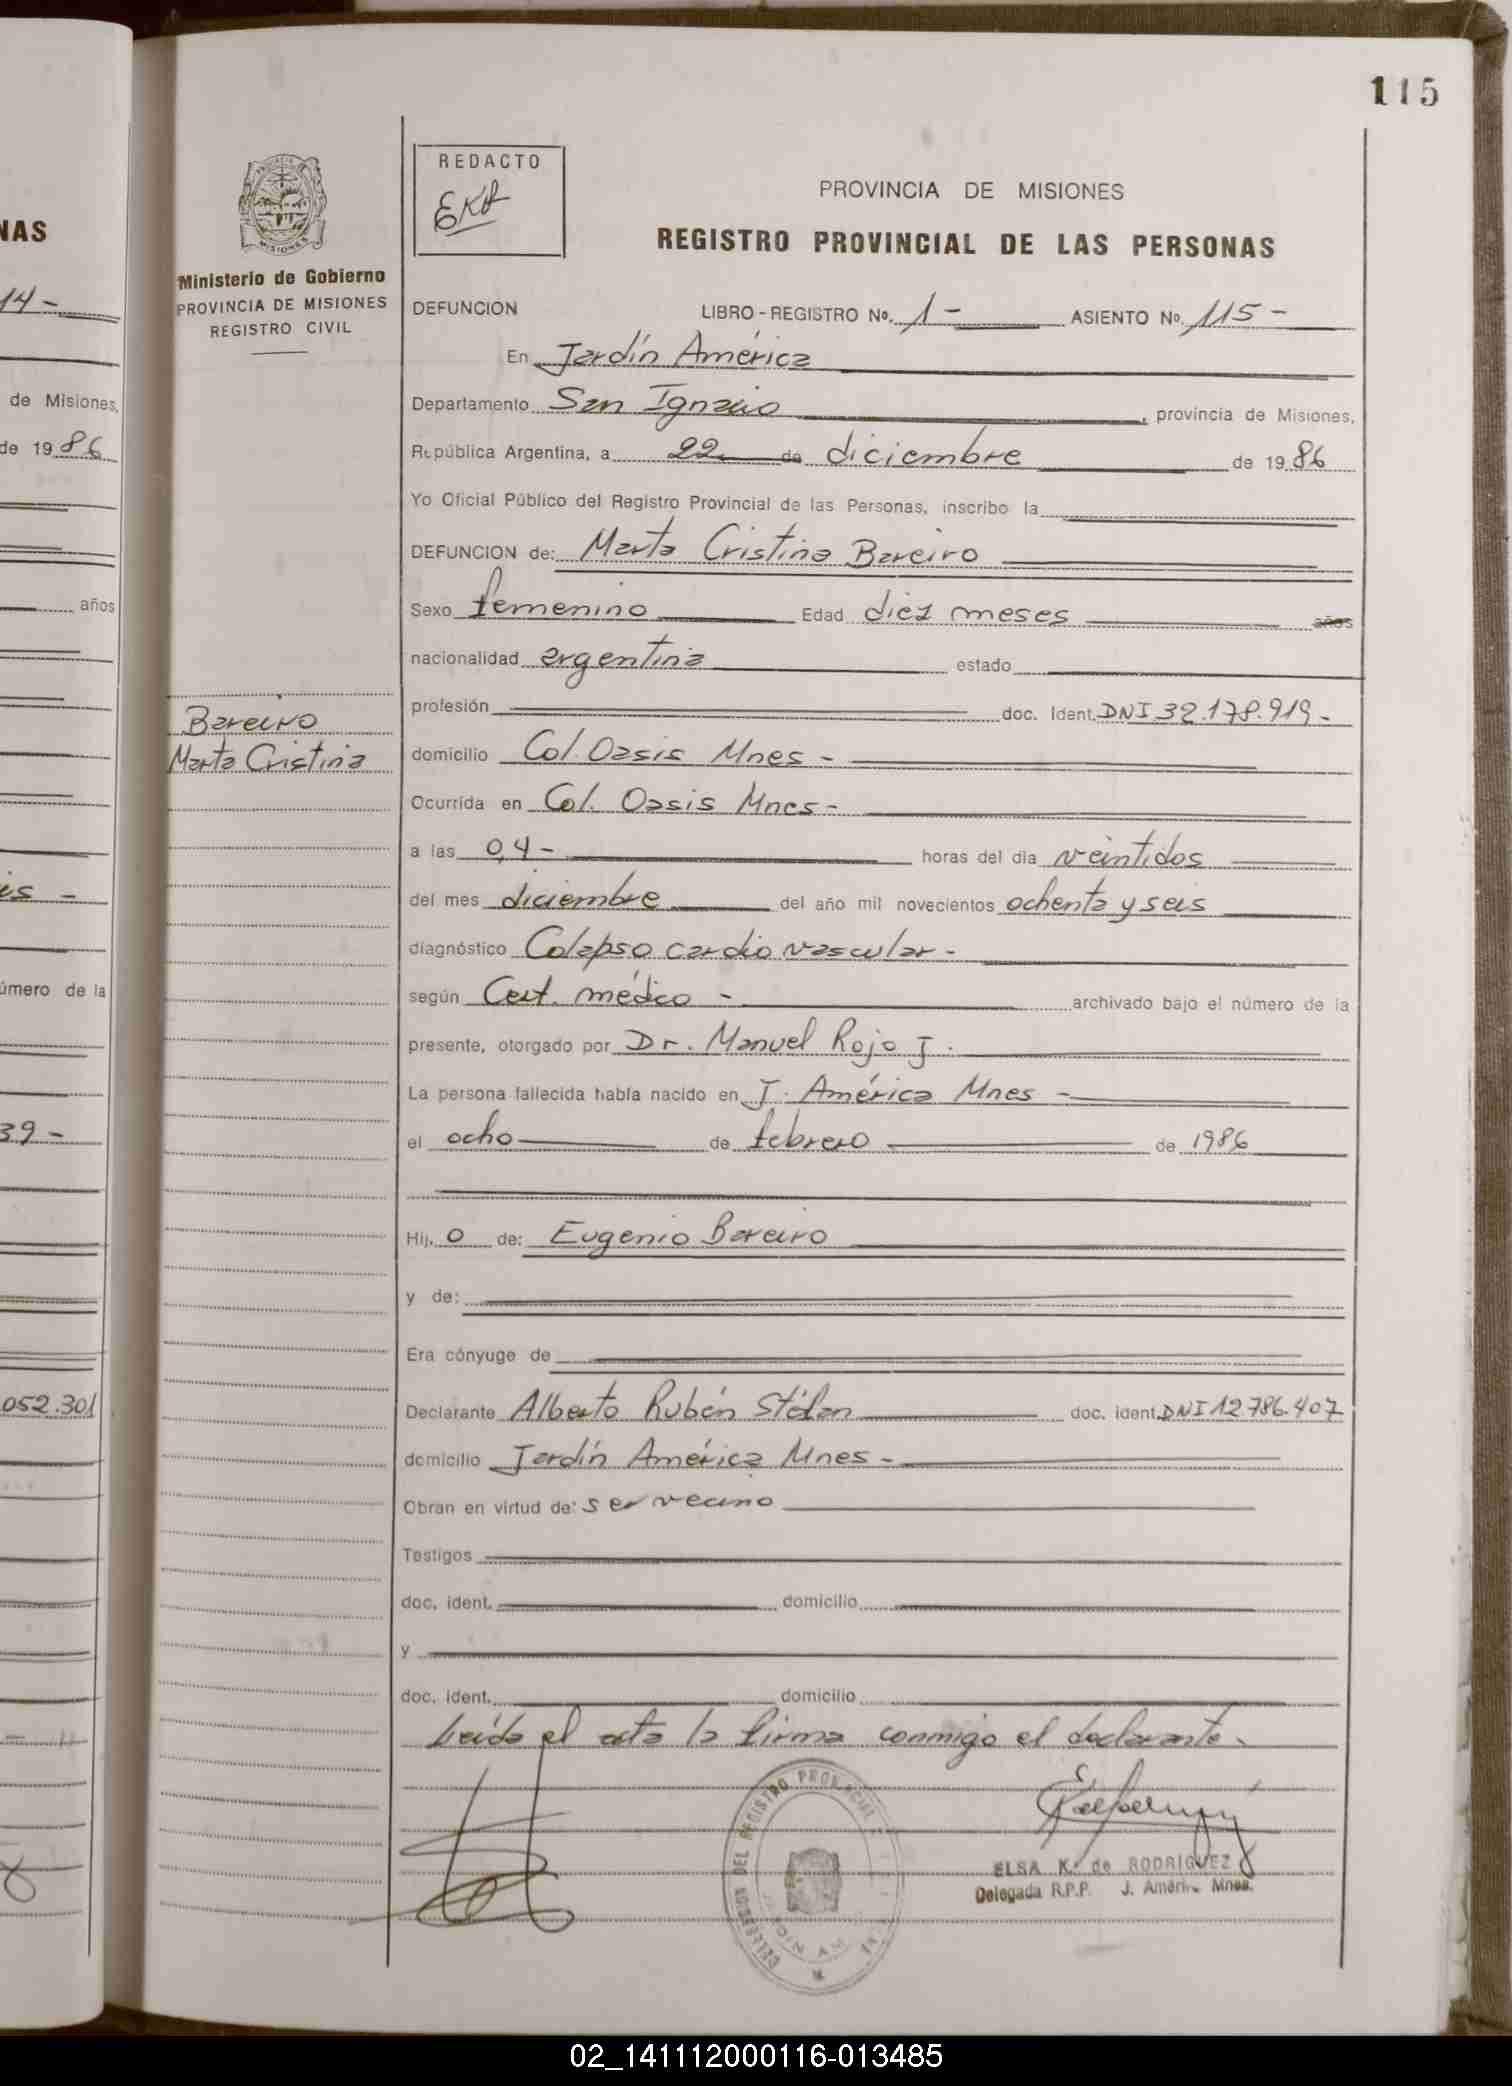 115
NAS
14 -
de Misiones,
de 19 86
años
es -
úmero de la
39 -
052.301
PROVINCIA DE MISIONES
Ministerio de Gobierno
PROVINCIA DE MISIONES
REGISTRO CIVIL
Bareiro
Marta Cristina
REDACTO
EKR
PROVINCIA DE MISIONES
REGISTRO PROVINCIAL DE LAS PERSONAS
DEFUNCION LIBRO - REGISTRO No. 1 - ASIENTO No. 115 -
En Jardín América
Departamento San Ignacio, provincia de Misiones,
República Argentina, a 22 de diciembre de 19 86
Yo Oficial Público del Registro Provincial de las Personas, inscribo la
DEFUNCION de: Marta Cristina Bareiro
Sexo femenino Edad diez meses años
nacionalidad argentina estado
profesión doc. Ident. DNI 32.178.919 -
domicilio Col. Oasis Mnes -
Ocurrida en Col. Oasis Mnes -
a las 0,4 - horas del día veintidos
del mes diciembre del año mil novecientos ochenta y seis
diagnóstico Colapso cardio vascular -
según Cert. médico - archivado bajo el número de la
presente, otorgado por Dr. Manuel Rojo J.
La persona fallecida había nacido en J. América Mnes -
el ocho de febrero de 1986
Hij o de: Eugenio Bareiro
y de:
Era cónyuge de
Declarante Alberto Rubén Stélan doc. ident. DNI 12.786.407
domicilio Jardín América Mnes -
Obran en virtud de: ser vecino
Testigos
doc. ident. domicilio
y
doc. ident. domicilio
Leída el acta la firma conmigo el declarante -
DELEGACION DEL REGISTRO PROVINCIAL
JARDIN AM
ELSA K. de RODRIGUEZ
Delegada R.P.P. J. América Mnes.
02_141112000116-013485